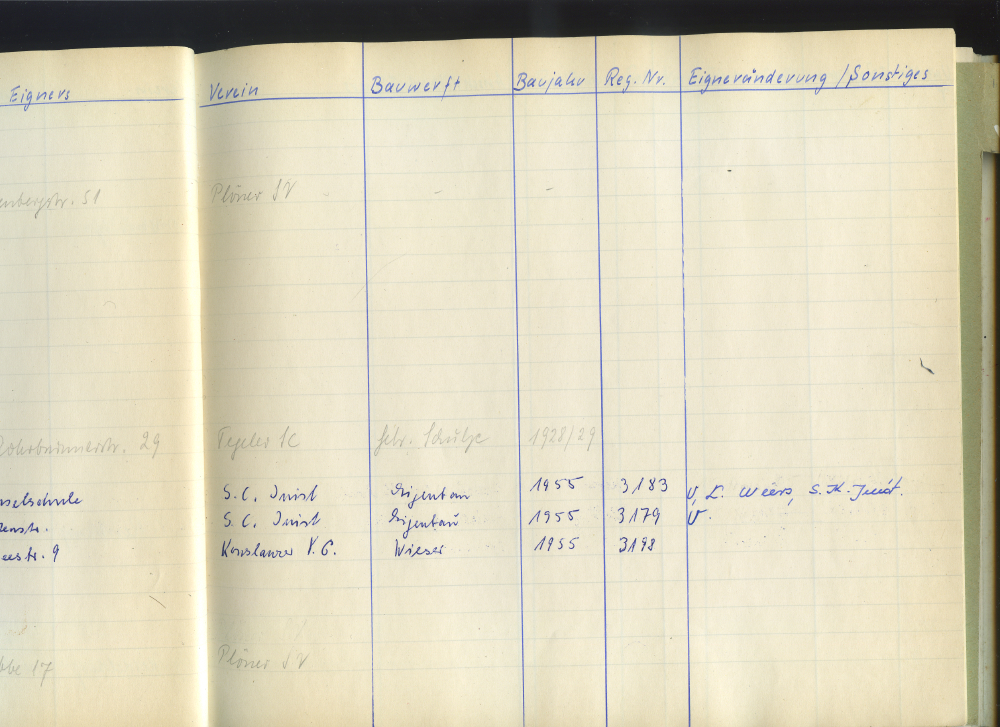 Eigners Verein Bauwerft Baujahr Reg. Nr. Eigneränderung / Sonstiges
enbergstr. 51 Plöner SV - - -
29 Tegeler SC Gebr. Schulze 1928/29
nselschule S. C. Juist Eigenbau 1955 3183 v. L. Weers, S. K. Juist.
S. C. Juist Eigenbau 1955 3179 V.
eestr. 9 Konstanzer Y. C. Wieser 1955 3198
bbe 17 Plöner SV